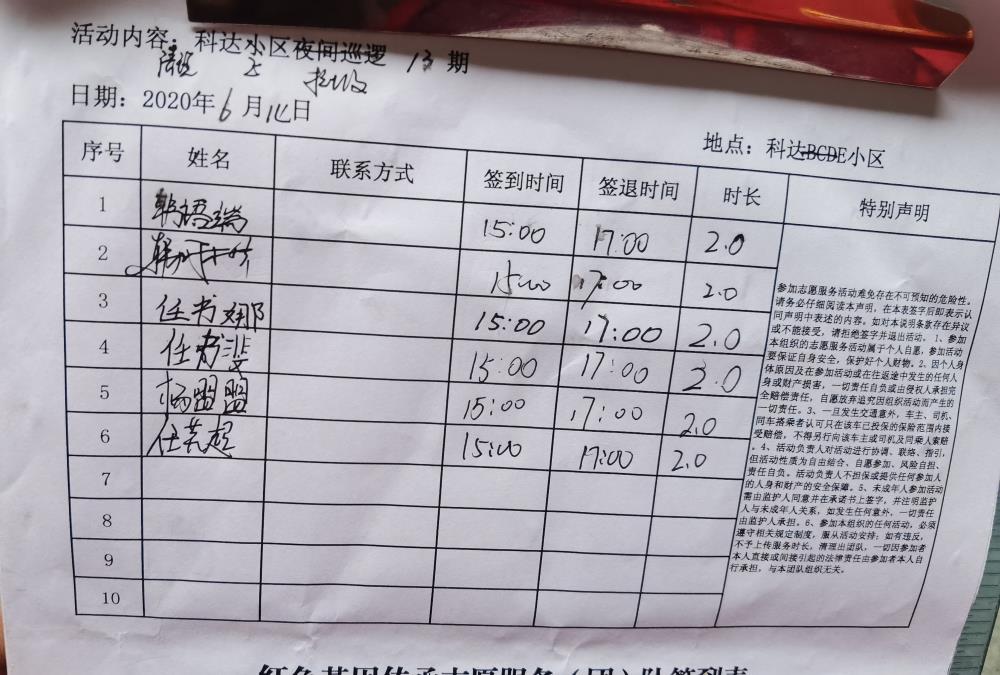 活动内容：科达小区夜间巡逻 13 期
日期：2020年6月14日
地点：科达BCDE小区
序号 姓名 联系方式 签到时间 签退时间 时长 特别声明
1 15:00 17:00 2.0
2 15:00 17:00 2.0
3 任书娜 15:00 17:00 2.0
4 任书 15:00 17:00 2.0
5 杨盟盟 15:00 17:00 2.0
6 任艺超 15:00 17:00 2.0
7
8
9
10
参加志愿服务活动难免存在不可预知的危险性。
请务必仔细阅读本声明，在本表签字后即表示认
同声明中表述的内容。如对本说明条款存在异议
或不能接受，请拒绝签字并退出活动。1、参加
本组织的志愿服务活动属于个人自愿，参加活动
要保证自身安全，保护好个人财物。2、因个人身
体原因及在参加活动或在往返途中发生的任何人
身或财产损害，一切责任自负或由侵权人承担完
全赔偿责任，自愿放弃追究因组织活动而产生的
一切责任。3、一旦发生交通意外，车主、司机、
同车搭乘者认可只在该车已投保的保险范围内接
受赔偿，不得另行向该车主或司机及同乘人索赔
。4、活动负责人对活动进行协调、联络、指引，
但活动性质为自由结合、自愿参加、风险自担、
责任自负。活动负责人不担保或提供任何参加人
的人身和财产的安全保障。5、未成年人参加活动
需由监护人同意并在承诺书上签字，并注明监护
人与未成年人关系，如发生任何意外，一切责任
由监护人承担。6、参加本组织的任何活动，必须
遵守相关规定制度，服从活动安排；如有违反，
不予上传服务时长，清理出团队，一切因参加者
本人直接或间接引起的法律责任由参加者本人自
行承担，与本团队组织无关。
红色基因传承志愿服务（团）队签到表